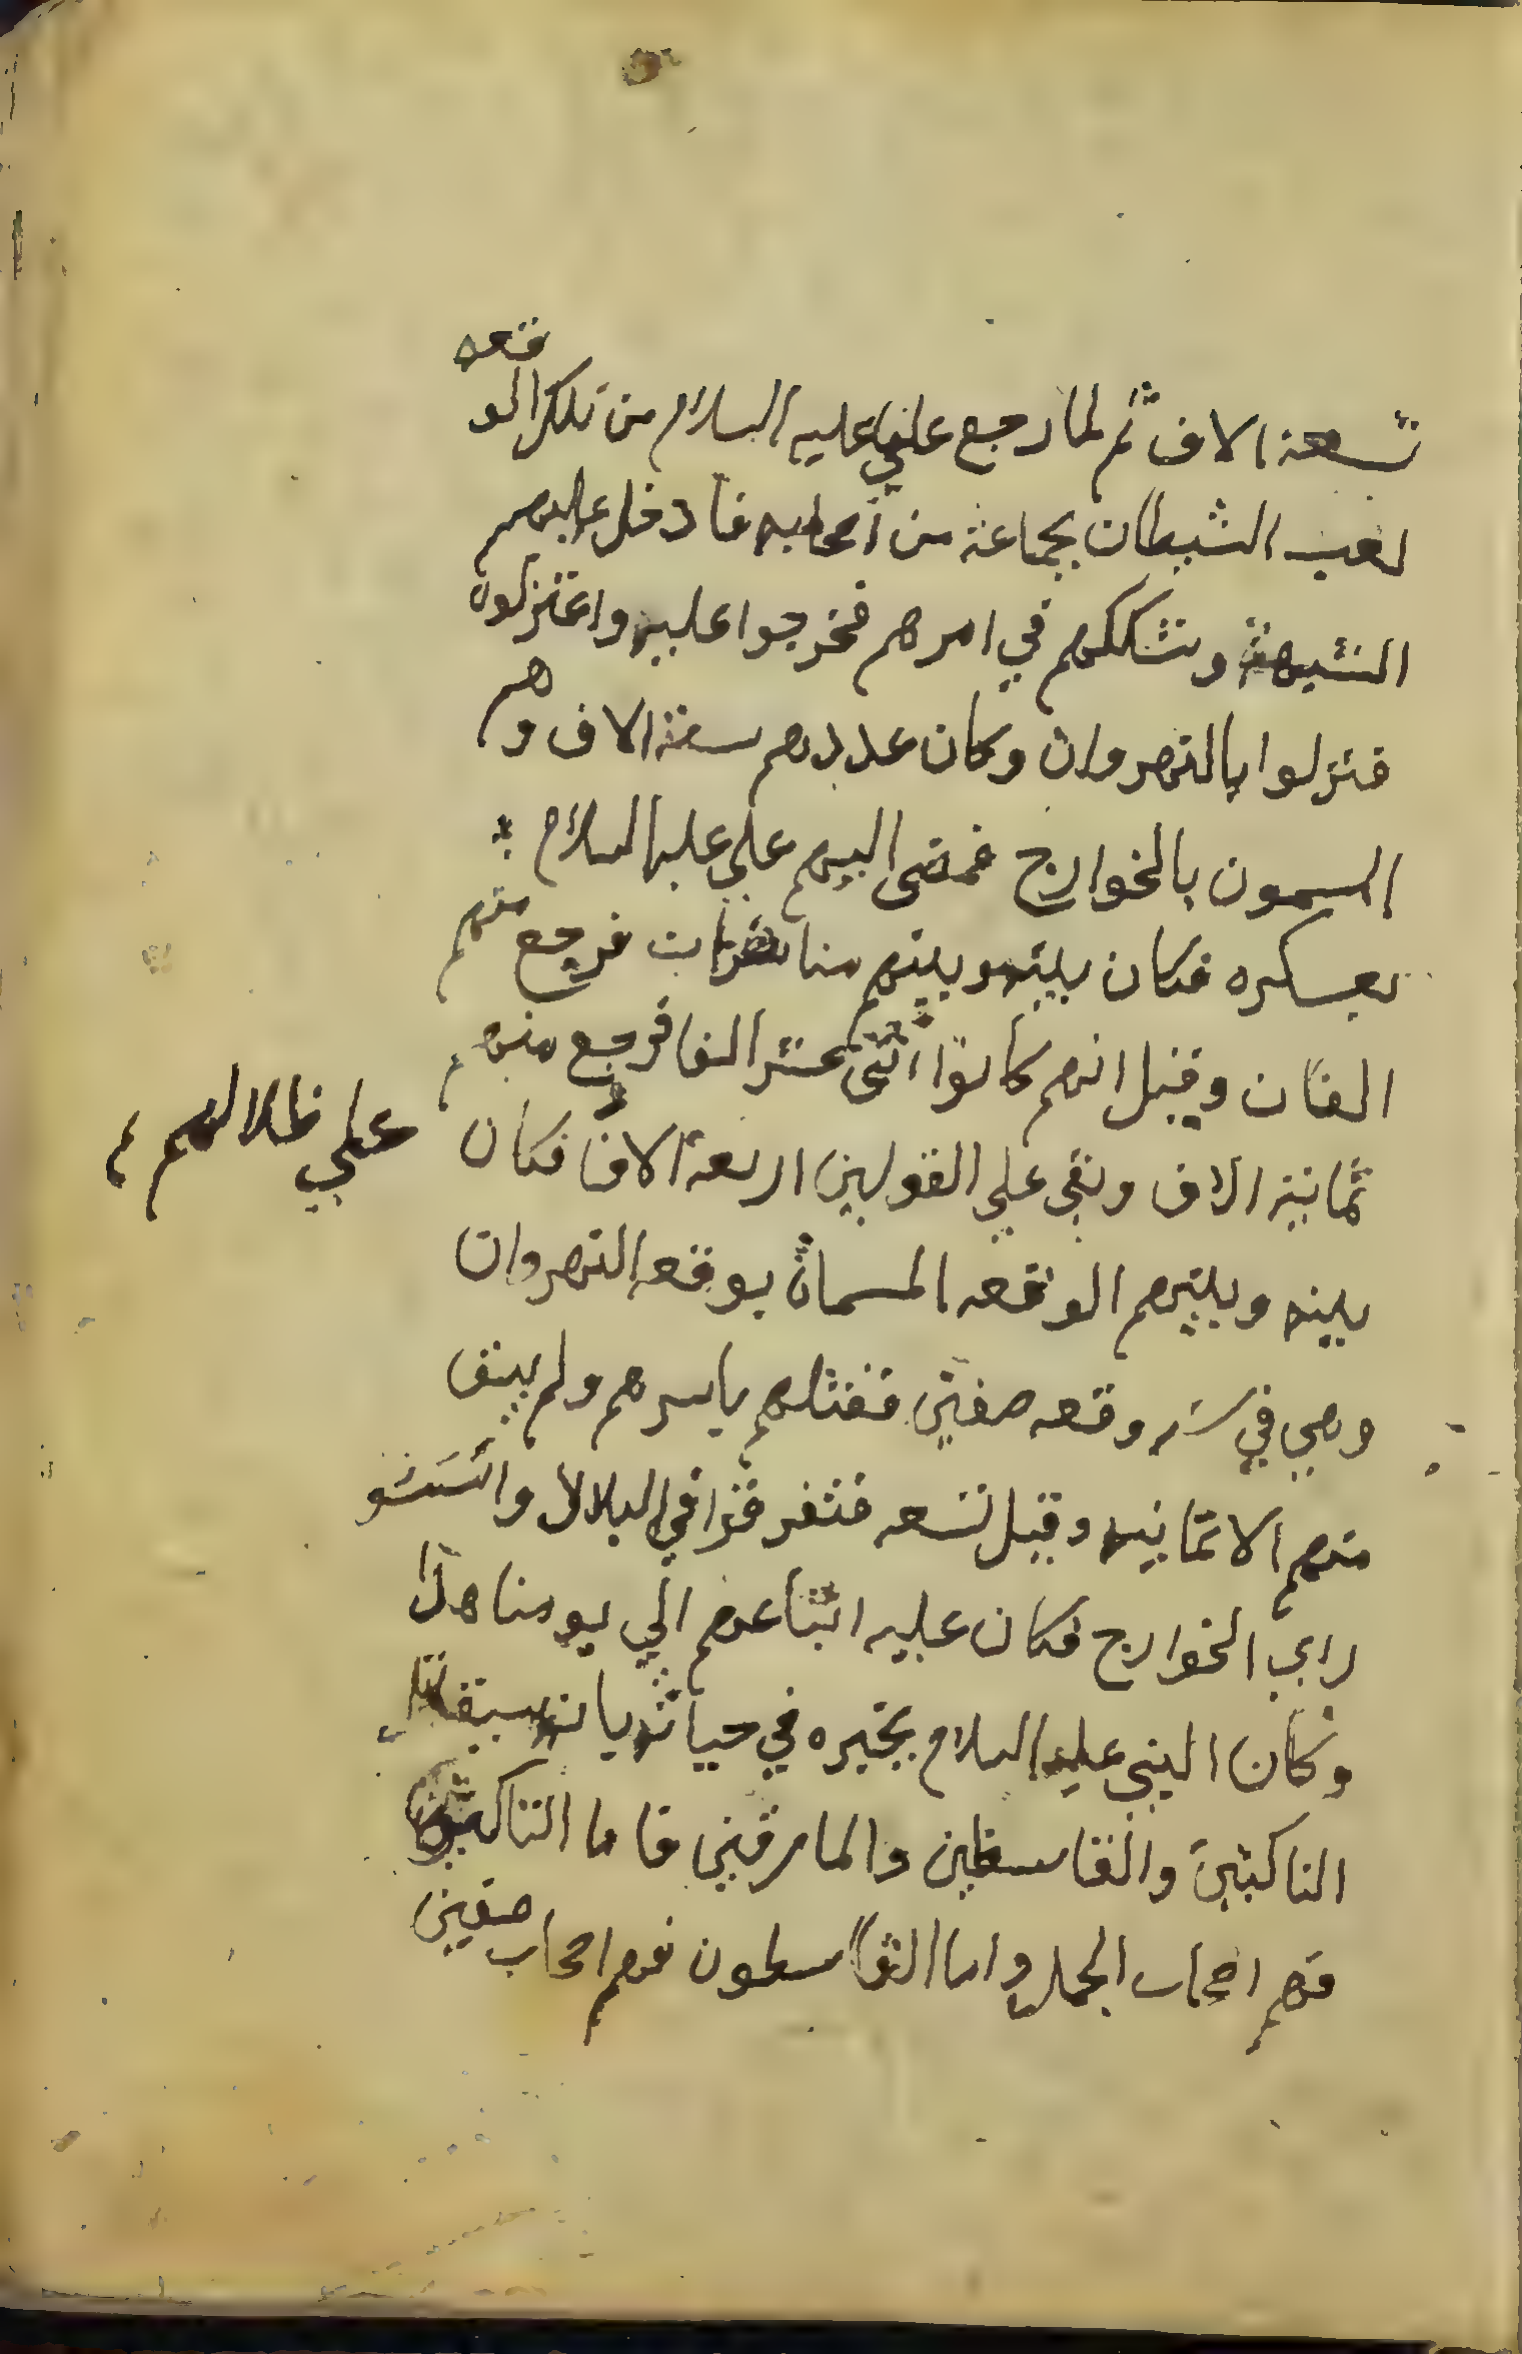 تسعة الاف ثم لما رجع علي عليه السلام من تلك الوقعه
لعب الشيطان بجماعة من أصحابه فأدخل عليهم
الشبهة وتشككهم في امرهم فخرجوا عليه واعتزلوه
فنزلوا بالنهروان وكان عددهم ستة الاف وهم
المسمون بالخوارج فمضى اليهم علي عليه السلام
بعسكره فكان بينه وبينهم مناظرات فرجع منهم
الفان وقيل انهم كانوا اثنى عشر الفا فرجع منهم
ثمانية الاف وبقى علي القولين اربعة الاف فكان
علي ظلالهم
بينه وبينهم الوقعه المسماة بوقعه النهروان
وهي في سنه وقعه صفين فقتلهم باسرهم ولم يبق
منهم الا ثمانيه وقيل تسعه فتفرقوا في البلاد وانستشو
راي الخوارج فكان عليه اتباعهم الي يومنا هذا
وكان النبي عليه السلام يخبره في حياته بانه سيقاتل
الناكثين والقاسطين والمارقين فاما الناكثون
فهم اصحاب الجمل واما القاسطون فهم اصحاب صفين